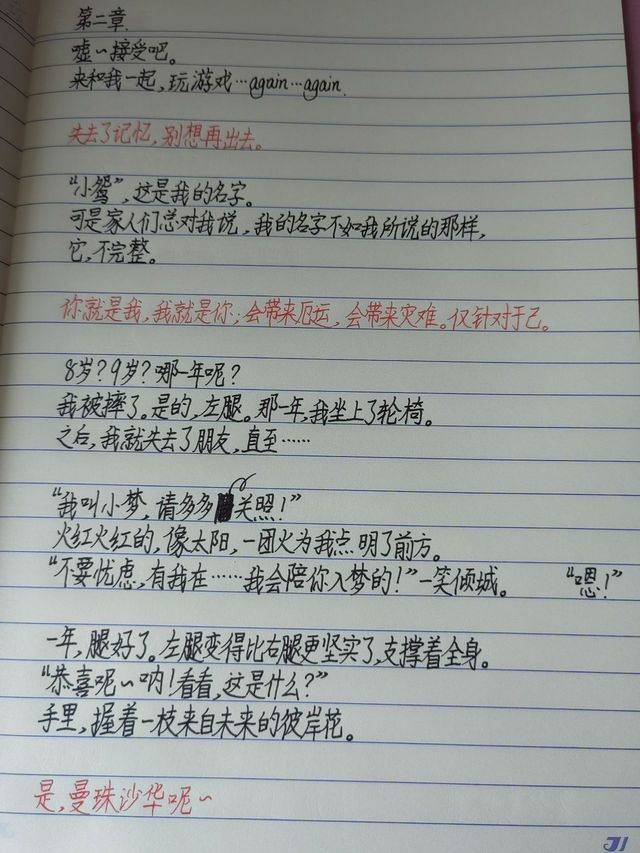 第二章.
嘘~接受吧。
来和我一起,玩游戏…again…again.
失去了记忆,别想再出去。
“小鸳”,这是我的名字。
可是家人们总对我说,我的名字不如我所说的那样,
它,不完整。
你就是我,我就是你;会带来厄运,会带来灾难。仅针对于己。
8岁?9岁?哪一年呢?
我被摔了。是的,左腿。那一年,我坐上了轮椅。
之后,我就失去了朋友,直至……
“我叫小梦,请多多关照!”
火红火红的,像太阳,一团火为我点明了前方。
“不要忧虑,有我在……我会陪你入梦的!”一笑倾城。 “嗯!”
一年,腿好了。左腿变得比右腿更坚实了,支撑着全身。
“恭喜呢~呐!看看,这是什么?”
手里,握着一枝来自未来的彼岸花。
是,曼珠沙华呢~